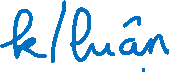 k/luận